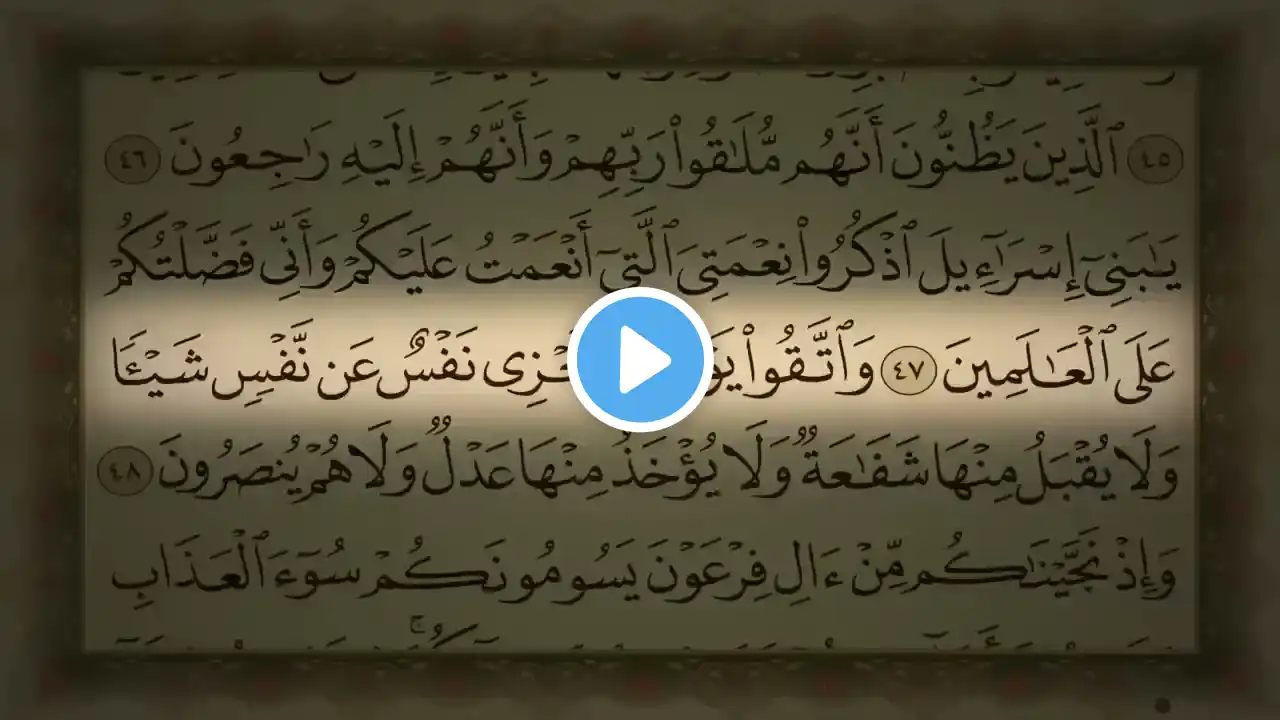 ٤٥ ٱلَّذِينَ يَظُنُّونَ أَنَّهُم مُّلَٰقُوا۟ رَبِّهِمْ وَأَنَّهُمْ إِلَيْهِ رَٰجِعُونَ ٤٦
يَٰبَنِىٓ إِسْرَٰٓءِيلَ ٱذْكُرُوا۟ نِعْمَتِىَ ٱلَّتِىٓ أَنْعَمْتُ عَلَيْكُمْ وَأَنِّى فَضَّلْتُكُمْ
عَلَى ٱلْعَٰلَمِينَ ٤٧ وَٱتَّقُوا۟ نَفْسٌ عَن نَّفْسٍ شَيْـًٔا
وَلَا يُقْبَلُ مِنْهَا شَفَٰعَةٌ وَلَا يُؤْخَذُ مِنْهَا عَدْلٌ وَلَا هُمْ يُنصَرُونَ ٤٨
وَإِذْ نَجَّيْنَٰكُم مِّنْ ءَالِ فِرْعَوْنَ يَسُومُونَكُمْ سُوٓءَ ٱلْعَذَابِ